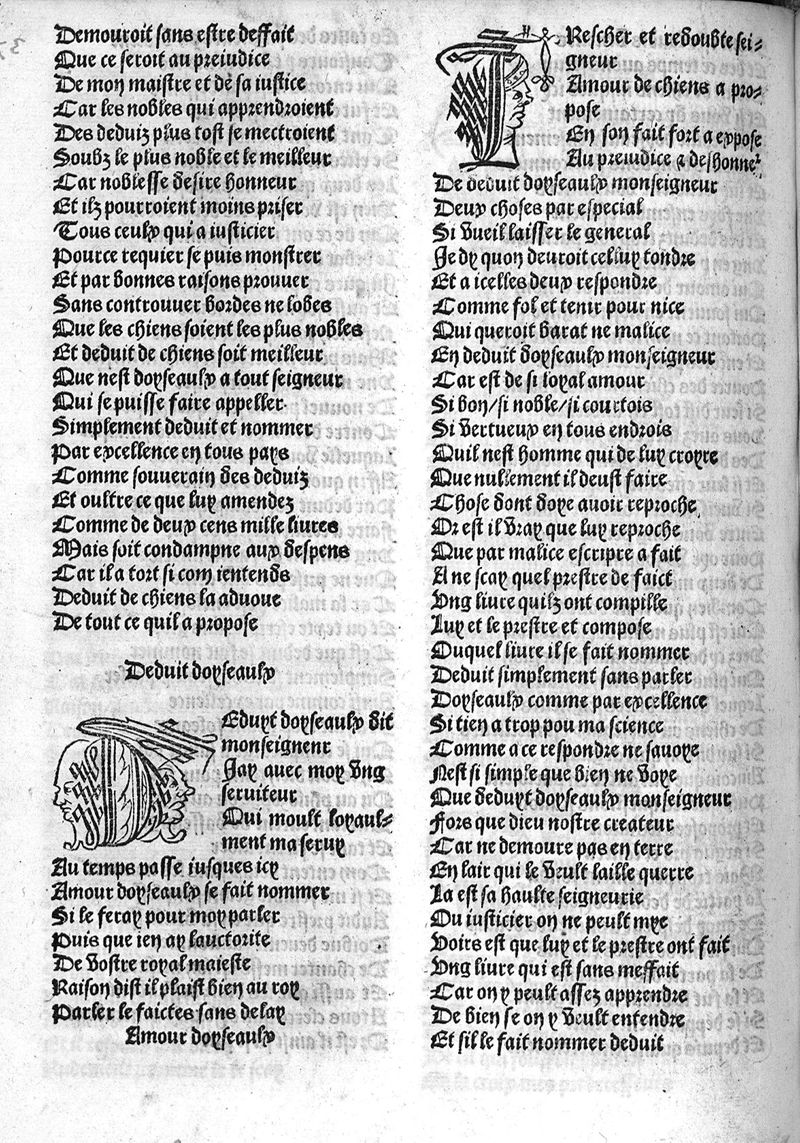 Demouroit sans estre deffait
Que ce seroit au preiudice
De mon maistre et de sa iustice
Car les nobles qui apprendroient
Des deduiz plus tost se mectroient
Soubz le plus noble et le meilleur
Car noblesse desire honneur
Et ilz pourroient moins priser
Tous ceulx qui a iusticier
Pource requier se puis monstrer
Et par bonnes raisons prouuer
Sans controuuer bordes ne lobes
Que les chiens soient les plus nobles
Et deduit de chiens soit meilleur
Que nest doyseaulx a tout seigneur
Qui se puisse faire appeller
Simplement deduit et nommer
Par excellence en tous pays
Comme souuerain des deduiz
Et oultre ce que luy amendez
Comme de deux cens mille liures
Mais soit condampne aux despens
Car il a tort si com ientends
Deduit de chiens la aduoue
De tout ce quil a propose
Deduit doyseaulx
DEduyt doyseaulx dit
monseigneur
Jay auec moy vng
seruiteur
Qui moult loyaul-
ment ma seruy
Au temps passe iusques icy
Amour doyseaulx se fait nommer
Si le feray pour moy parler
Puis que ien ay lauctorite
De vostre royal maieste
Raison dist il plaist bien au roy
Parler le faictes sans delay
Amour doyseaulx
TRescher et redoubte sei-
gneur
Amour de chiens a pro-
pose
En son fait fort a expose
Au preiudice a deshonner
De deduit doyseaulx monseigneur
Deux choses par especial
Si vueil laisser le general
Je dy quon deuroit celluy tondre
Et a icelles deux respondre
Comme fol et tenir pour nice
Qui queroit barat ne malice
En deduit doyseaulx monseigneur
Car est de si loyal amour
Si bon/si noble/si courtois
Si vertueux en tous endrois
Quil nest homme qui de luy croyre
Que nullement il deust faire
Chose dont doye auoir reproche
Or est il vray que luy reproche
Que par malice escripre a fait
A ne scay quel prestre de faict
Vng liure quilz ont compille
Luy et le prestre et compose
Ouquel liure il se fait nommer
Deduit simplement sans parler
Doyseaulx comme par excellence
Si tien a trop pou ma science
Comme a ce respondre ne sauoye
Nest si simple que bien ne voye
Que deduyt doyseaulx monseigneur
Fors que dieu nostre createur
Car ne demoure pas en terre
En lair qui le veult laille querre
La est sa haulte seigneurie
Ou iusticier on ne peult mye
Voirs est que luy et le prestre ont fait
Vng liure qui est sans meffait
Car on y peult assez apprendre
De bien se on y veult entendre
Et sil le fait nommer deduit